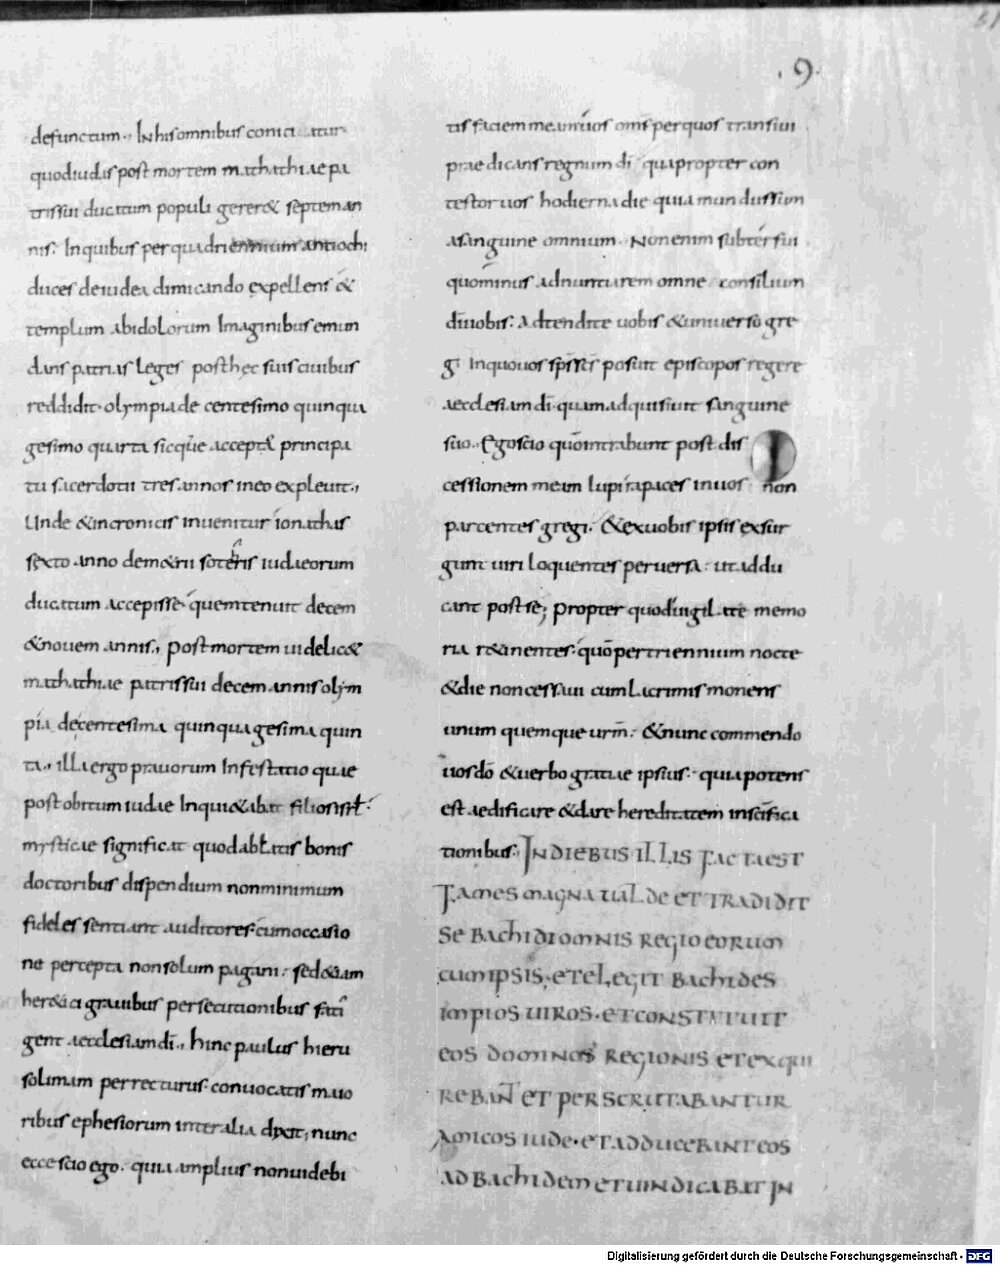 .9.
defunctum., In his omnibus conici tur
quod iudas post mortem mathathiae pa
tris sui ducatum populi gereret septem an
nis. In quibus per quadriennium antiochi
duces de iudea dimicando expellens &
templum ab idolorum Imaginibus emun
dans patrias leges posthec suis ciuibus
reddidit. olympiade centesimo quinqua
gesimo quarta sicque accepta principa
tu sacerdotii tres annos in eo expleuit.,
Unde & in cronicis inuenitur ionathas
sexto anno dem&rii soteris iudaeorum
ducatum accepisse quem tenuit decem
& nouem annis., post mortem uidelic&
mathathiae patris sui decem annis olym
piade centesima quinquagesima quin
ta., illa ergo prauorum Infestatio quae
post obitum iudae Inqui&abat filios isrl.
mysticae significat quod ablatis bonis
doctoribus dispendium non minimum
fideles sentiant auditores. cum occasio
ne percepta non solum pagani. sed &iam
her&ici grauibus persecutionibus fati
gent aecclesiam dī., hinc paulus hieru
solimam perrecturus. conuocatis maio
ribus ephesiorum inter alia dixit; nunc
ecce scio ego. quia amplius non uidebi
tis faciem meam uos oms per quos transiui
praedicans regnum dī quapropter con
testor uos hodierna die quia mundus sum
a sanguine omnium. Non enim subterfui
quominus adnuntiarem omne consilium
dī uobis. Adtendite uobis & uniuerso gre
gi In quo uos sps scs posuit episcopos regere
aecclesiam dī. quam adquisiuit sanguine
suo., Ego scio quō intrabunt post dis
cessionem meam lupi rapaces in uos non
parcentes gregi. & ex uobis ipsis exsur
gunt uiri loquentes peruersa. ut addu
cant post se; propter quod uigilate memo
ria r&inentes. quō per triennium nocte
& die non cessaui cum lacrimis monens
unum quemque urm. & nunc commendo
uos dō & uerbo gratiae ipsius. quia potens
est aedificare & dare hereditatem in scifica
tionibus. IN DIEBUS ILLIS FACTA EST
FAMES MAGNA UALDE ET TRADIDIT
SE BACHIDI OMNIS REGIO EORUM
CUM IPSIS. ET ELEGIT BACHIDES
IMPIOS UIROS. ET CONSTITUIT
EOS DOMINOS REGIONIS ET EXQUI
REBANT ET PERSCRUTABANTUR
AMICOS IUDE. ET ADDUCEBANT EOS
AD BACHIDEM ET UINDICABAT IN
Digitalisierung gefördert durch die Deutsche Forschungsgemeinschaft - DFG